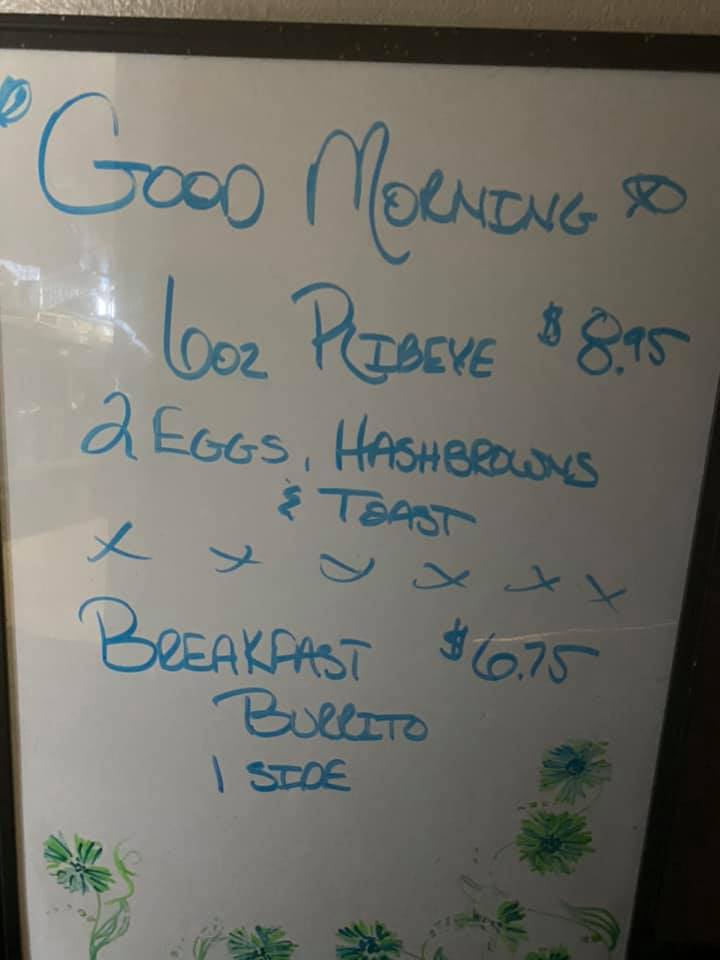 GOOD MORNING
6oz RIBEYE $8.95
2 EGGS, HASHBROWNS
& TOAST
x x x x x x
BREAKFAST $6.75
BURRITO
1 SIDE